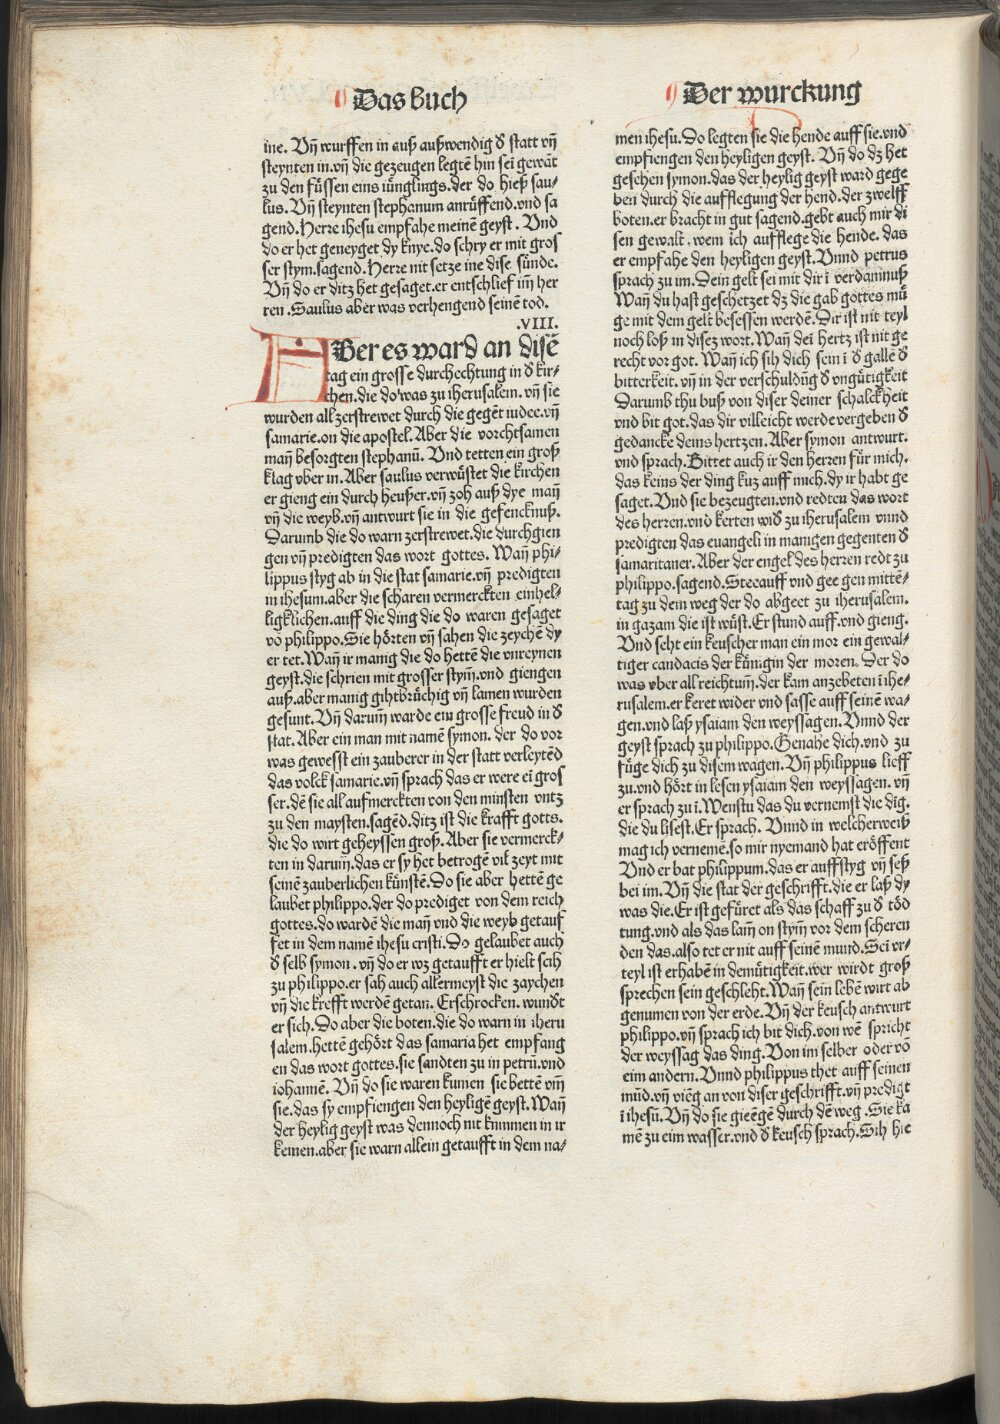 Das Buch
ine. Vn̄ wurffen in auß außwendig d̕ statt vn̄
steynten in.vn̄ die gezeugen legtē hin sei gewāt
zu den füssen eins iünglings.der do hieß sau-
lus. Vn̄ steynten stephanum anrüffend.vnd sa
gend.Herre ihesu empfahe meinē geyst. Vnd
do er het geneyget dy knye.do schry er mit gros
ser stym.sagend.Herre nit setze ine dise sünde.
Vn̄ do er ditz het gesaget.er entschlief im̄ her
ren.Saulus aber was verhengend seinē tod.
.VIII.
ABer es ward an disē
tag ein grosse durchechtung in d̕ kir-
chen.die do was zu iherusalem.vn̄ sie
wurden all zerstrewet durch die gegēt iudee.vn̄
samarie.on die apostel. Aber die vorchtsamen
man̄ besorgten stephanū. Vnd tetten ein groß
klag vber in. Aber saulus verwüstet die kirchen
er gieng ein durch heußer.vn̄ zoh auß dye man̄
vn̄ die weyb.vn̄ antwurt sie in die gefencknuß.
Darumb die do warn zerstrewet.die durchgien
gen vn̄ predigten das wort gottes. Wan̄ phi-
lippus styg ab in die stat samarie.vn̄ predigten
in ihesum.aber die scharen vermerckten einhel-
ligklichen.auff die ding die do waren gesaget
vō philippo.Sie hörten vn̄ sahen die zeychē dy
er tet.Wan̄ ir manig die do hettē die vnreynen
geyst.die schrien mit grosser stym̄.vnd giengen
auß.aber manig gihtbrüchig vn̄ lamen wurden
gesunt.Vn̄ darum̄ warde ein grosse freud in d̕
stat.Aber ein man mit namē symon. der do vor
was gewesst ein zauberer in der statt verleytēd
das volck samarie.vn̄ sprach das er were eī gros
ser.dē sie all aufmerckten von den minsten vntz
zu den maysten.sagēd.ditz ist die krafft gotts.
die do wirt geheyssen groß. Aber sie vermerck-
ten in darum̄.das er sy het betrogē vil zeyt mit
seinē zauberlichen künstē.Do sie aber hettē ge
laubet philippo.der do prediget von dem reich
gottes.do wardē die man̄ vnd die weyb getauf
fet in dem namē ihesu cristi.Do gelaubet auch
d̕ selb symon.vn̄ do er wz getaufft er hielt sich
zu philippo.er sah auch allermeyst die zaychen
vn̄ die krefft werdē getan. Erschrocken. wund̕t
er sich.Do aber die boten.die do warn in iheru
salem.hettē gehört das samaria het empfang
en das wort gottes.sie sandten zu in petrū.vnd
iohannē. Vn̄ do sie waren kumen sie bettē vm̄
sie.das sy empfiengen den heyligē geyst.Wan̄
der heylig geyst was dennoch nit kummen in ir
keinen.aber sie warn allein getaufft in dem na-
Der wurckung
men ihesu.Do legten sie die hende auff sie.vnd
empfiengen den heyligen geyst. Vn̄ do dz het
gesehen symon.das der heylig geyst ward gege
ben durch die aufflegung der hend.der zwelff
boten.er bracht in gut sagend.gebt auch mir di
sen gewalt.wem ich aufflege die hende. das
er empfahe den heyligen geyst.Vnnd petrus
sprach zu im.Dein gelt sei mit dir ī verdamnuß
Wan̄ du hast geschetzet dz die gab gottes mü
ge mit dem gelt besessen werdē.Dir ist nit teyl
noch loß in disez wort.Wan̄ dei hertz ist nit ge
recht vor got. Wan̄ ich sih dich sein ī d̕ galle d̕
bitterkeit.vn̄ in der verschuldūg d̕ vngütigkeit
Darumb thu buß von diser deiner schalckheit
vnd bit got.das dir villeicht werde vergeben d̕
gedancke deins hertzen.Aber symon antwurt.
vnd sprach.Bittet auch ir den herren für mich.
das keins der ding kuz auff mich.dy ir habt ge
saget.Vnd sie bezeugten.vnd redten das wort
des herren.vnd kerten wid̕ zu iherusalem vnnd
predigten das euangeli in manigen gegenten d̕
samaritaner. Aber der engel des herren redt zu
philippo.sagend.Steeauff vnd gee gen mittē-
tag zu dem weg der do abgeet zu iherusalem.
in gazam die ist wüst.Er stund auff.vnd gieng.
Vnd seht ein keuscher man ein mor ein gewal-
tiger candacis der künigin der moren. Der do
was vber all reichtum̄.der kam anzebeten ī ihe-
rusalem.er keret wider vnd sasse auff seinē wa-
gen.vnd laß ysaiam den weyssagen.Vnnd der
geyst sprach zu philippo.Genahe dich.vnd zu
füge dich zu disem wagen.Vn̄ philippus lieff
zu.vnd hört in lesen ysaiam den weyssagen. vn̄
er sprach zu ī.Wenstu das du vernemst die dig.
die du lisest.Er sprach. Vnnd in welcherweiß
mag ich vernemē.so mir nyemand hat eröffent
Vnd er bat philippum.das er auffstyg vn̄ seß
bei im.Vn̄ die stat der geschrifft.die er laß dy
was die.Er ist gefüret als das schaff zu d̕ töd
tung.vnd als das lam̄ on stym̄ vor dem scheren
den das.also tet er nit auff seinē mund.Sei vr-
teyl ist erhabē in demütigkeit.wer wirdt groß
sprechen sein geschleht.Wan̄ sein lebē wirt ab
genumen von der erde.Vn̄ der keusch antwurt
philippo.vn̄ sprach ich bit dich.von wē spricht
der weyssag das ding.Von im selber oder vō
eim andern.Vnnd philippus thet auff seinen
mūd.vn̄ viēg an von diser geschrifft.vn̄ predigt
ī ihesū.Vn̄ do sie gieēgē durch dē weg.Sie ka
mē zu eim wasser.vnd d̕ keusch sprach.Sih hie